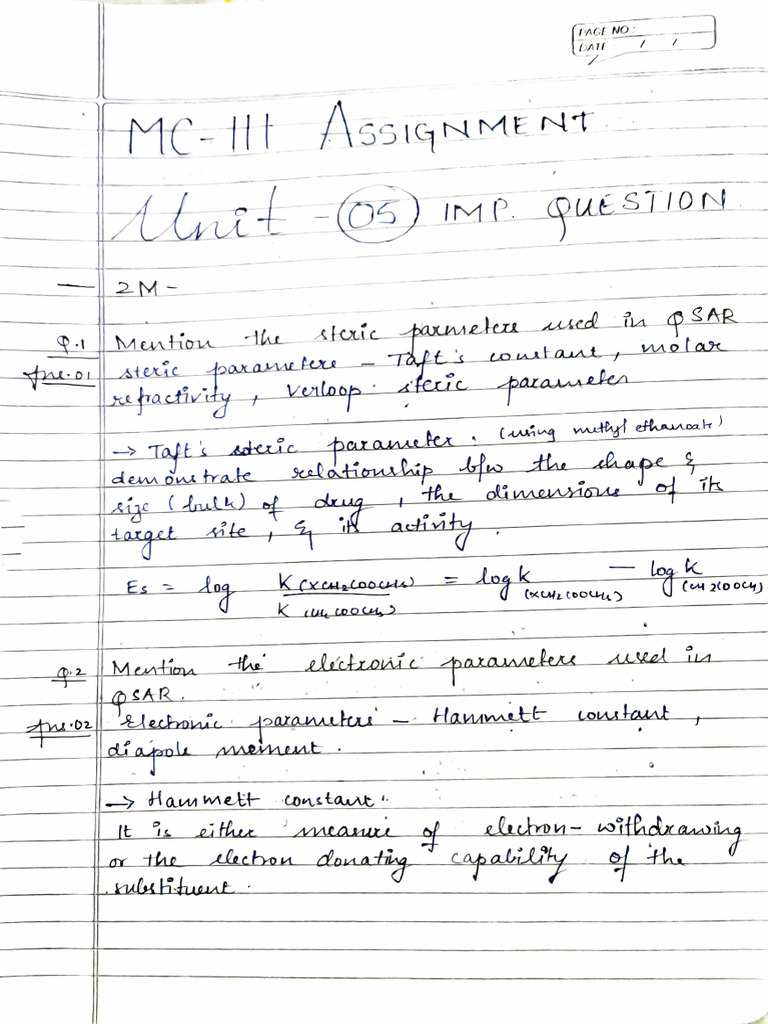 PAGE NO:
DATE / /
MC-III ASSIGNMENT
Unit - 05 IMP. QUESTION
— 2M -
Q.1 Mention the steric parmeters used in QSAR
Ans.01 steric parameters - Taft's constant, molar
refractivity, verloop steric parameter
→ Taft's steric parameter. (using methyl ethanoate)
demonstrate relationship b/w the shape &
size (bulk) of drug, the dimensions of its
target site, & its activity.
Es = log K(XCH2COOCH3) = log K — log K
K (CH2COOCH3) (XCH2COOCH3) (CH2COOCH3)
Q.2 Mention the electronic parameters used in
QSAR.
Ans.02 Electronic parameters - Hammett constant,
diapole moment.
→ Hammett constant:
It is either measure of electron-withdrawing
or the electron donating capability of the
substituent.